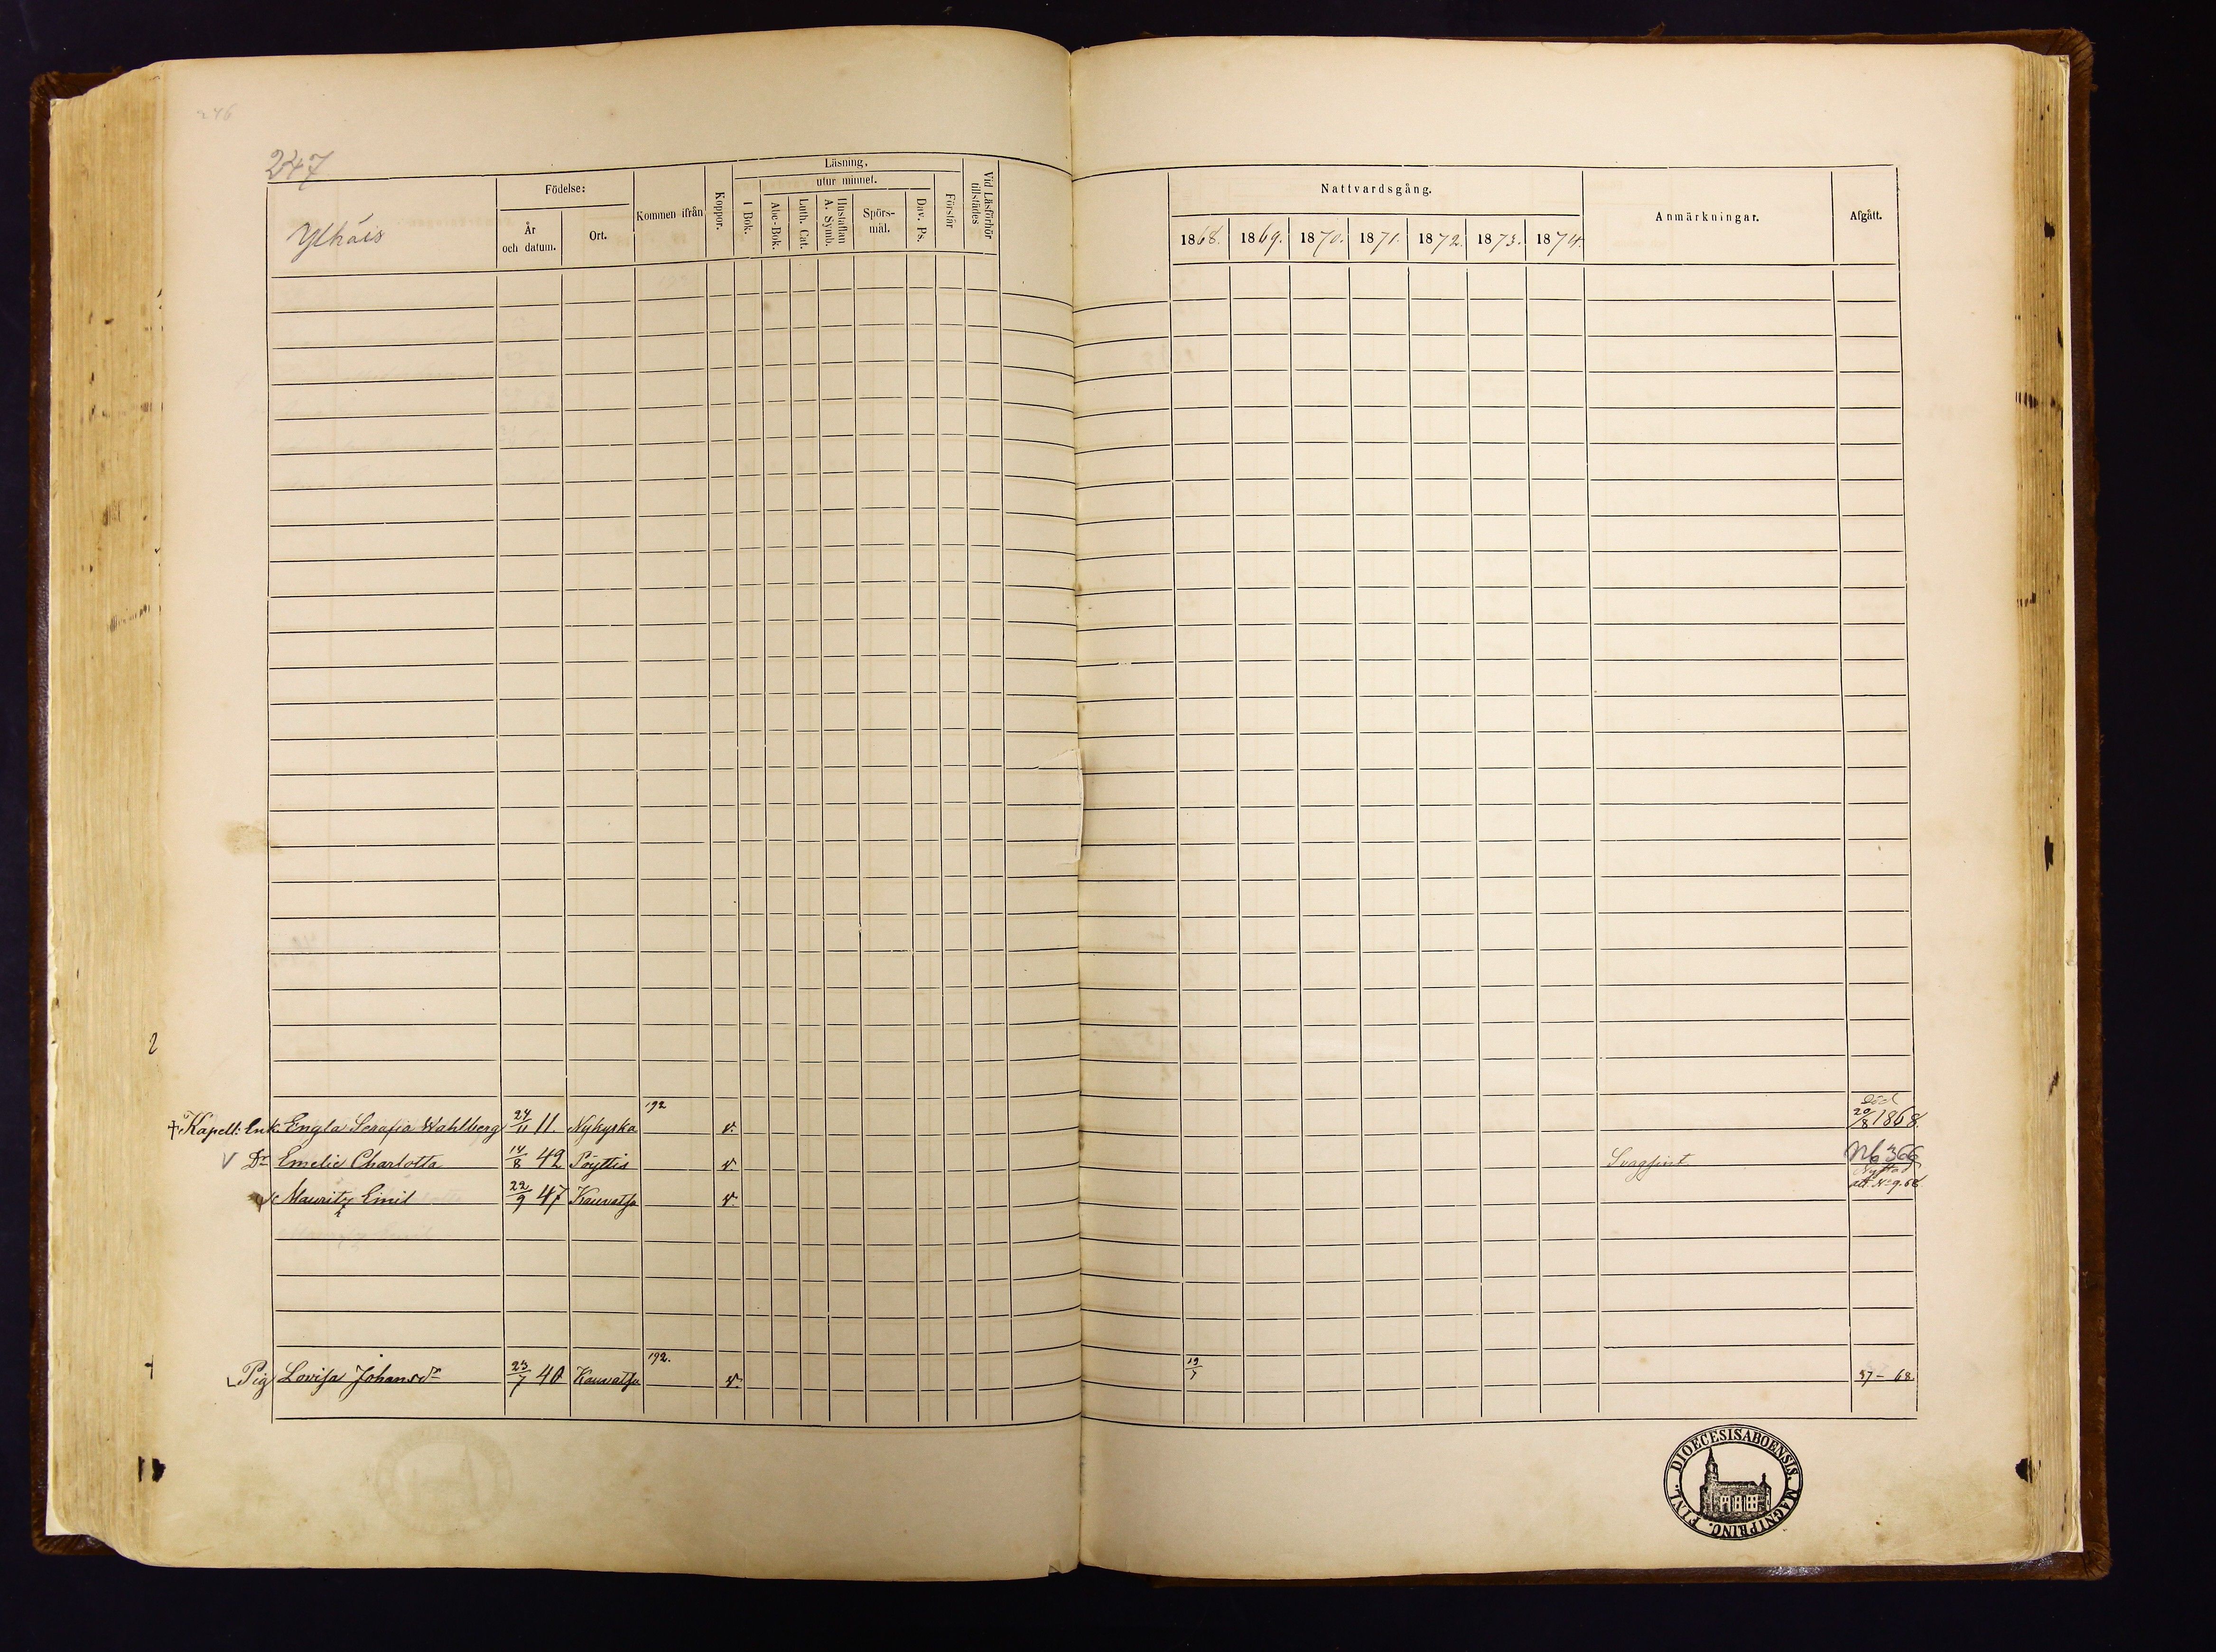 246
247
Ylhäis
Födelse:
År och datum.
Ort.
Kommen ifrån
Koppor.
Läsning.
I Bok.
utur minnet.
Abc-Bok.
Luth. Cat.
Hustaflan A. Symb.
Spörs-mål.
Dav. Ps.
Förstår
Vid Läsförhör tillstädes
Nattvardsgång.
1868. 1869. 1870. 1871. 1872. 1873. 1874.
Anmärkningar.
Afgått.
†Kapell: Enk. Engla Serafia Wahlberg 24/11 11 Nykyrka 192 v. död 20/8 1868.
V Dr Emelie Charlotta 14/8 42 Pöyttis v. Svagsint Nb 366
Mauritz Emil 22/9 47 Kauvatsa v. Nystad att. No 9. 68.
Pig Lovisa Johansdr 23/7 40 Kauvatsa 192. v. 19/7 37 - 68.
DIOECESIS ABOENSIS. MAGNI PRINC. FINL.